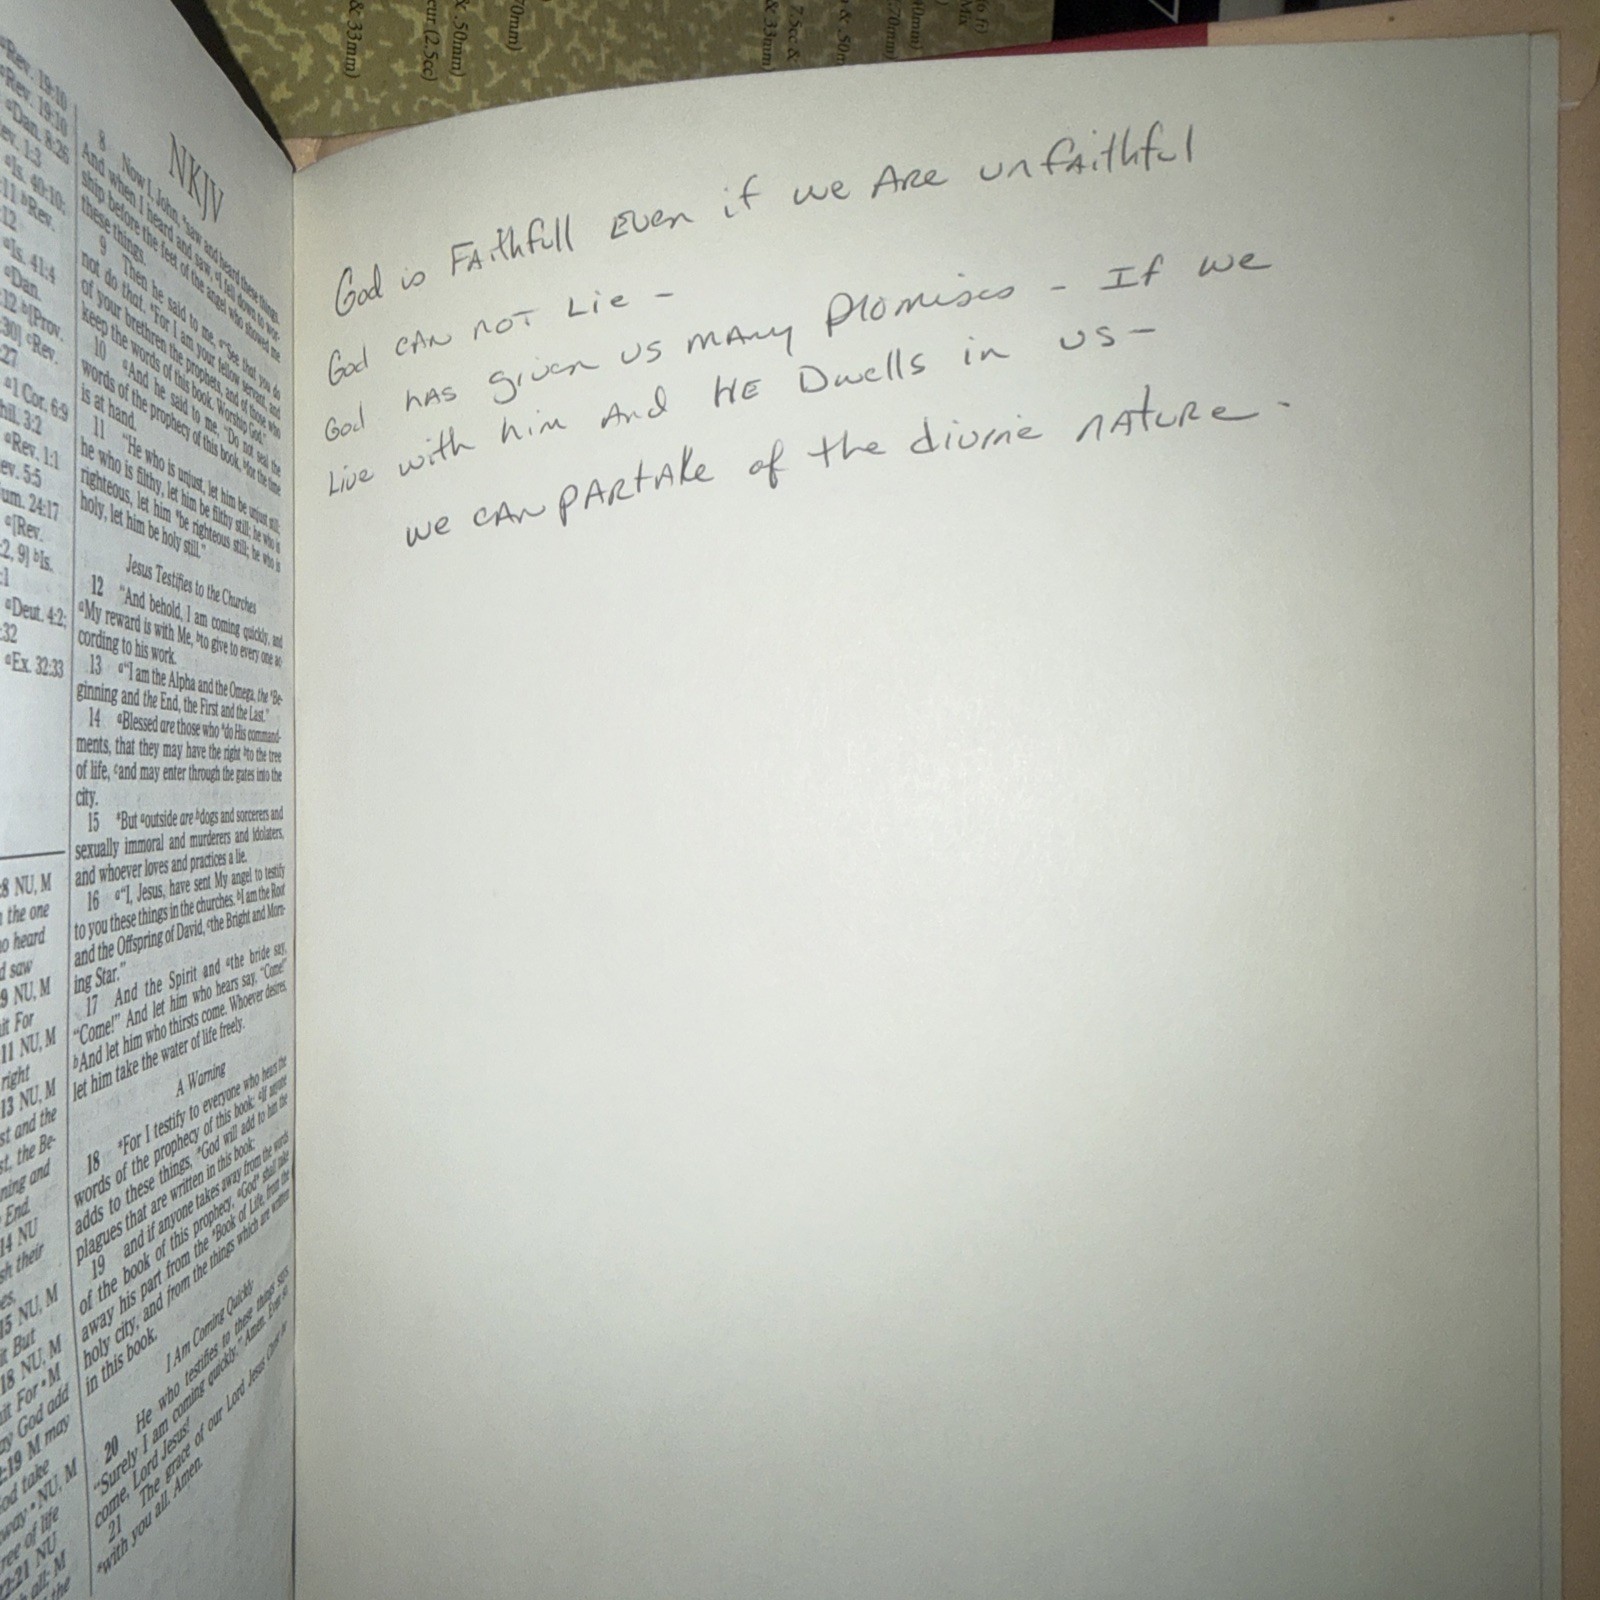 & 33mm)
cur (2.5cc)
& .50mm)
70mm)
& 33mm)
7.5cc &
& .50m
.70mm)
40mm)
Mix
to fi)
aRev. 19:10
aRev. 19:10
aDan. 8:26
ev. 1:3
aIs. 40:10;
:11 bRev.
:12
aIs. 41:4
aDan.
:12 b[Prov.
:30] cRev.
:27
a1 Cor. 6:9
hil. 3:2
aRev. 1:1
ev. 5:5
um. 24:17
a[Rev.
:2, 9] bIs.
:1
aDeut. 4:2;
:32
aEx. 32:33
:8 NU, M
the one
o heard
d saw
9 NU, M
it For
11 NU, M
right
13 NU, M
st and the
st, the Be-
ning and
End.
14 NU
sh their
es,
15 NU, M
t But
18 NU, M
it For • M
ay God add
:19 M may
od take
way • NU, M
ree of life
22:21 NU
all; M
the
NKJV
8 Now I, John, asaw and heard these things.
And when I heard and saw, bI fell down to wor-
ship before the feet of the angel who showed me
these things.
9 Then he said to me, a"See that you do
not do that. aFor I am your fellow servant, and
of your brethren the prophets, and of those who
keep the words of this book. Worship God."
10 aAnd he said to me, "Do not seal the
words of the prophecy of this book, bfor the time
is at hand.
11 "He who is unjust, let him be unjust still;
he who is filthy, let him be filthy still; he who is
righteous, let him abe righteous still; he who is
holy, let him be holy still."
Jesus Testifies to the Churches
12 "And behold, I am coming quickly, and
aMy reward is with Me, bto give to every one ac-
cording to his work.
13 a"I am the Alpha and the Omega, the aBe-
ginning and the End, the First and the Last."
14 aBlessed are those who ado His command-
ments, that they may have the right bto the tree
of life, cand may enter through the gates into the
city.
15 aBut aoutside are bdogs and sorcerers and
sexually immoral and murderers and idolaters,
and whoever loves and practices a lie.
16 a"I, Jesus, have sent My angel to testify
to you these things in the churches. bI am the Root
and the Offspring of David, cthe Bright and Morn-
ing Star."
17 And the Spirit and athe bride say,
"Come!" And let him who hears say, "Come!"
bAnd let him who thirsts come. Whoever desires,
let him take the water of life freely.
A Warning
18 aFor I testify to everyone who hears the
words of the prophecy of this book: aIf anyone
adds to these things, aGod will add to him the
plagues that are written in this book;
19 and if anyone takes away from the words
of the book of this prophecy, aGod shall take
away his part from the aBook of Life, from the
holy city, and from the things which are written
in this book.
I Am Coming Quickly
20 He who testifies to these things says,
"Surely I am coming quickly." Amen. Even so,
come, Lord Jesus!
21 The grace of our Lord Jesus Christ be
awith you all. Amen.
God is FAithfull Even if we ARE unfAithful
God CAN NOT LiE –
God HAS given US MANY Promises – If we
Live with him And HE Dwells in US –
we CAN PARtAKe of the divine NATURE –